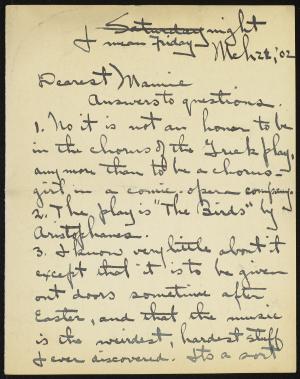 Saturday night
I mean Friday
Mch 28, '02
Dearest Mamie
Answers to questions.
1. No it is not an honor to be
in the chorus of the Greek play,
any more than to be a chorus-
girl in a comic-opera company.
2. The play is "The Birds" by
Aristophanes.
3. I know very little about it
except that it is to be given
out doors sometime after
Easter, and that the music
is the weirdest, hardest stuff
I ever discovered. Its a sort